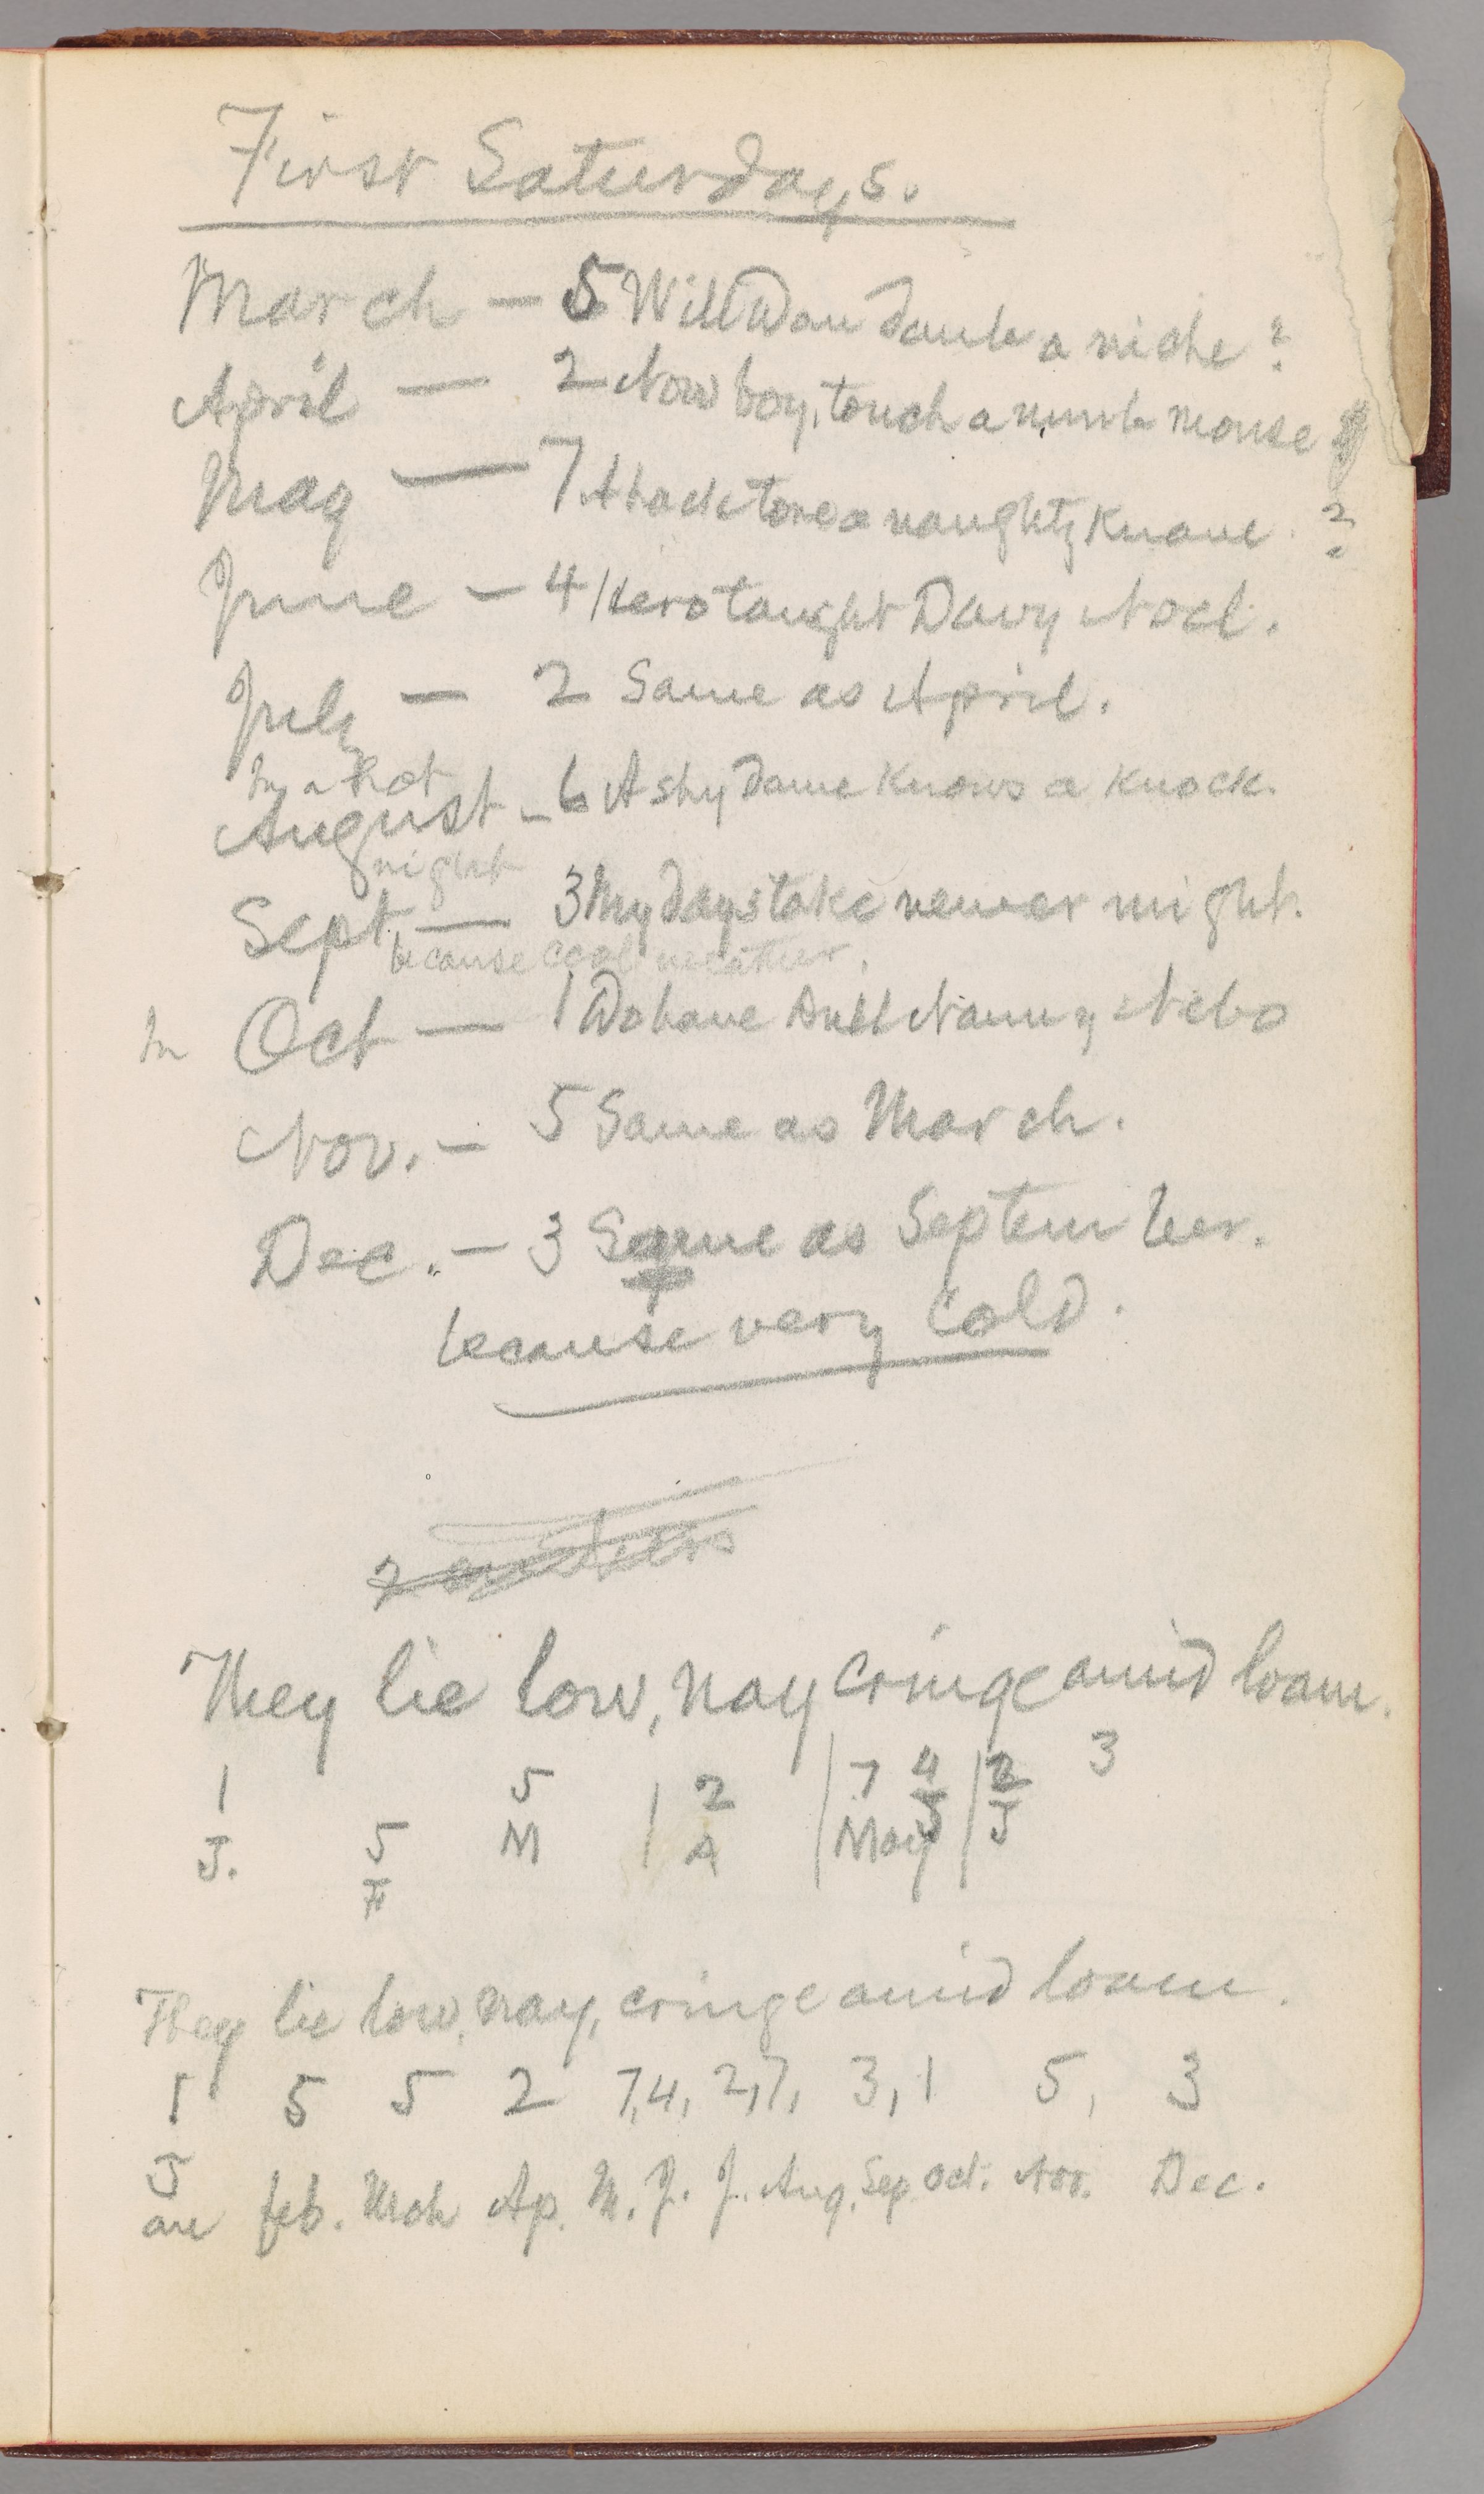 First Saturdays.
March — 5 Will Dan daub a niche?
April — 2 Now boy, touch a numb mouse
May — 7 A hack tore a naughty knave. ?
June — 4 Hero taught Davy Noel.
July — 2 Same as April.
In a hot
August — 6 A shy dame knows a knock.
night
Sept. — 3 My days take newer might.
because cool weather.
In Oct — 1 Do have Nanny Nebo
Nov. — 5 Same as March.
Dec. — 3 Same as September.
because very cold.
They lie low, nay cringe amid loam.
1 5 | 2 | 7 4 | 2 3
J. 5 M | A | May J | J
F
They lie low, nay, cringe amid loam.
1 5 5 2 7,4, 2,7, 3,1 5, 3
J
an feb. Mch Ap. M. J. J. Aug. Sep. Oct. Nov. Dec.